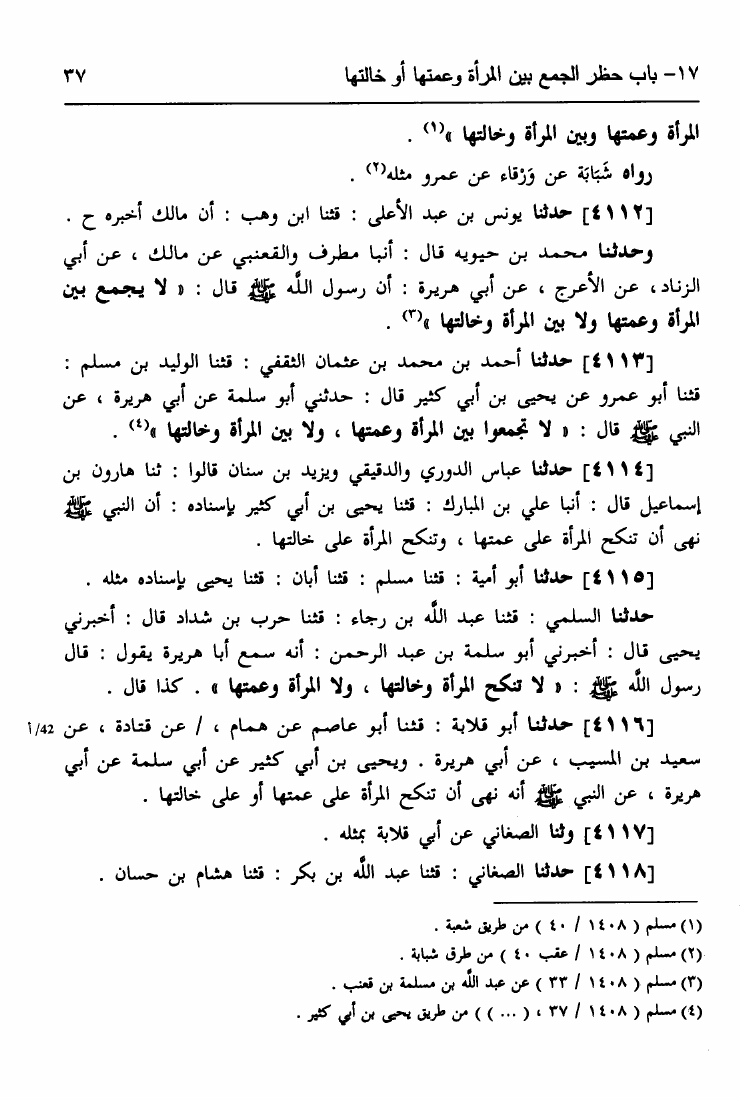 ١٧- باب حظر الجمع بين المرأة وعمتها أو خالتها ٣٧
المرأة وعمتها وبين المرأة وخالتها »(١) .
رواه شَبَابَة عن وَرْقاء عن عمرو مثله(٢) .
[٤١١٢] حدثنا يونس بن عبد الأعلى : قثنا ابن وهب : أن مالك أخبره ح .
وحدثنا محمد بن حيويه قال : أنبا مطرف والقعنبي عن مالك ، عن أبي
الزناد، عن الأعرج ، عن أبي هريرة : أن رسول اللَّه ﷺ قال : « لا يجمع بين
المرأة وعمتها ولا بين المرأة وخالتها »(٣) .
[٤١١٣] حدثنا أحمد بن محمد بن عثمان الثقفي : قثنا الوليد بن مسلم :
قثنا أبو عمرو عن يحيى بن أبي كثير قال : حدثني أبو سلمة عن أبي هريرة ، عن
النبي ﷺ قال : « لا تجمعوا بين المرأة وعمتها ، ولا بين المرأة وخالتها »(٤) .
[٤١١٤] حدثنا عباس الدوري والدقيقي ويزيد بن سنان قالوا : ثنا هارون بن
إسماعيل قال : أنبا علي بن المبارك : قثنا يحيى بن أبي كثير بإسناده : أن النبي ﷺ
نهى أن تنكح المرأة على عمتها ، وتنكح المرأة على خالتها .
[٤١١٥] حدثنا أبو أمية : قثنا مسلم : قثنا أبان : قثنا يحيى بإسناده مثله .
حدثنا السلمي : قثنا عبد اللَّه بن رجاء : قثنا حرب بن شداد قال : أخبرني
يحيى قال : أخبرني أبو سلمة بن عبد الرحمن : أنه سمع أبا هريرة يقول : قال
رسول اللَّه ﷺ : « لا تنكح المرأة وخالتها ، ولا المرأة وعمتها » . كذا قال .
[٤١١٦] حدثنا أبو قلابة : قثنا أبو عاصم عن همام ، / عن قتادة ، عن 42/أ
سعيد بن المسيب ، عن أبي هريرة . ويحيى بن أبي كثير عن أبي سلمة عن أبي
هريرة ، عن النبي ﷺ أنه نهى أن تنكح المرأة على عمتها أو على خالتها .
[٤١١٧] وثنا الصغاني عن أبي قلابة بمثله .
[٤١١٨] حدثنا الصغاني : قثنا عبد اللَّه بن بكر : قثنا هشام بن حسان .
(١) مسلم ( ١٤٠٨ / ٤٠ ) من طريق شعبة .
(٢) مسلم ( ١٤٠٨ / عقب ٤٠ ) من طرق شبابة .
(٣) مسلم ( ١٤٠٨ / ٣٣ ) عن عبد اللَّه بن مسلمة بن قعنب .
(٤) مسلم ( ١٤٠٨ / ٣٧ ، ( ... ) ) من طريق يحيى بن أبي كثير .